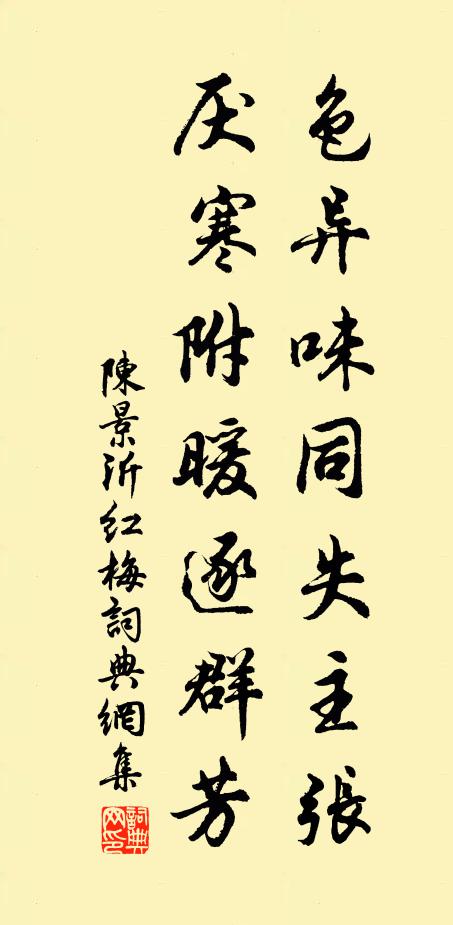 色异味同失主張
厌寒附暖逐群芳
陳景沂红梅詞典網集
詞典网印